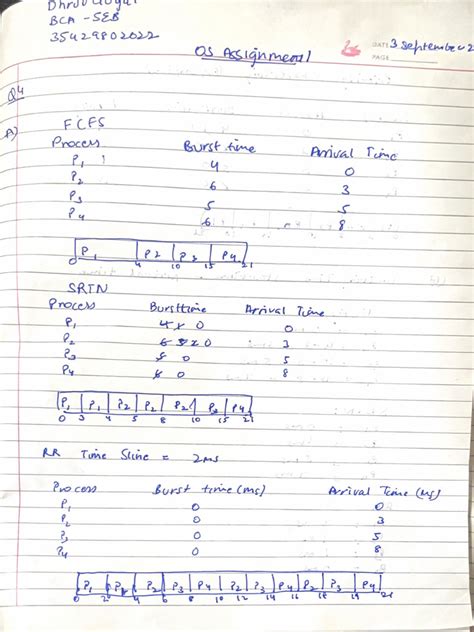 BCA - SEB
35429802022
OS Assignment
DATE 3 September
PAGE
Q4
A) FCFS
Process Burst time Arrival Time
P1 4 0
P2 6 3
P3 5 5
P4 6 8
P1 P2 P3 P4
0 4 10 15 21
SRTN
Process Burst time Arrival Time
P1 4 0 0
P2 0 3
P3 0 5
P4 0 8
P1 P1 P2 P2 P2 P3 P4
0 3 4 5 8 10 15 21
RR Time Sline = 2ms
Process Burst time (ms) Arrival Time (ms)
P1 0 0
P2 0 3
P3 0 5
P4 0 8
P1 P2 P3 P4 P2 P3 P4 P2 P3 P4
0 2 4 6 8 10 12 14 16 18 19 21